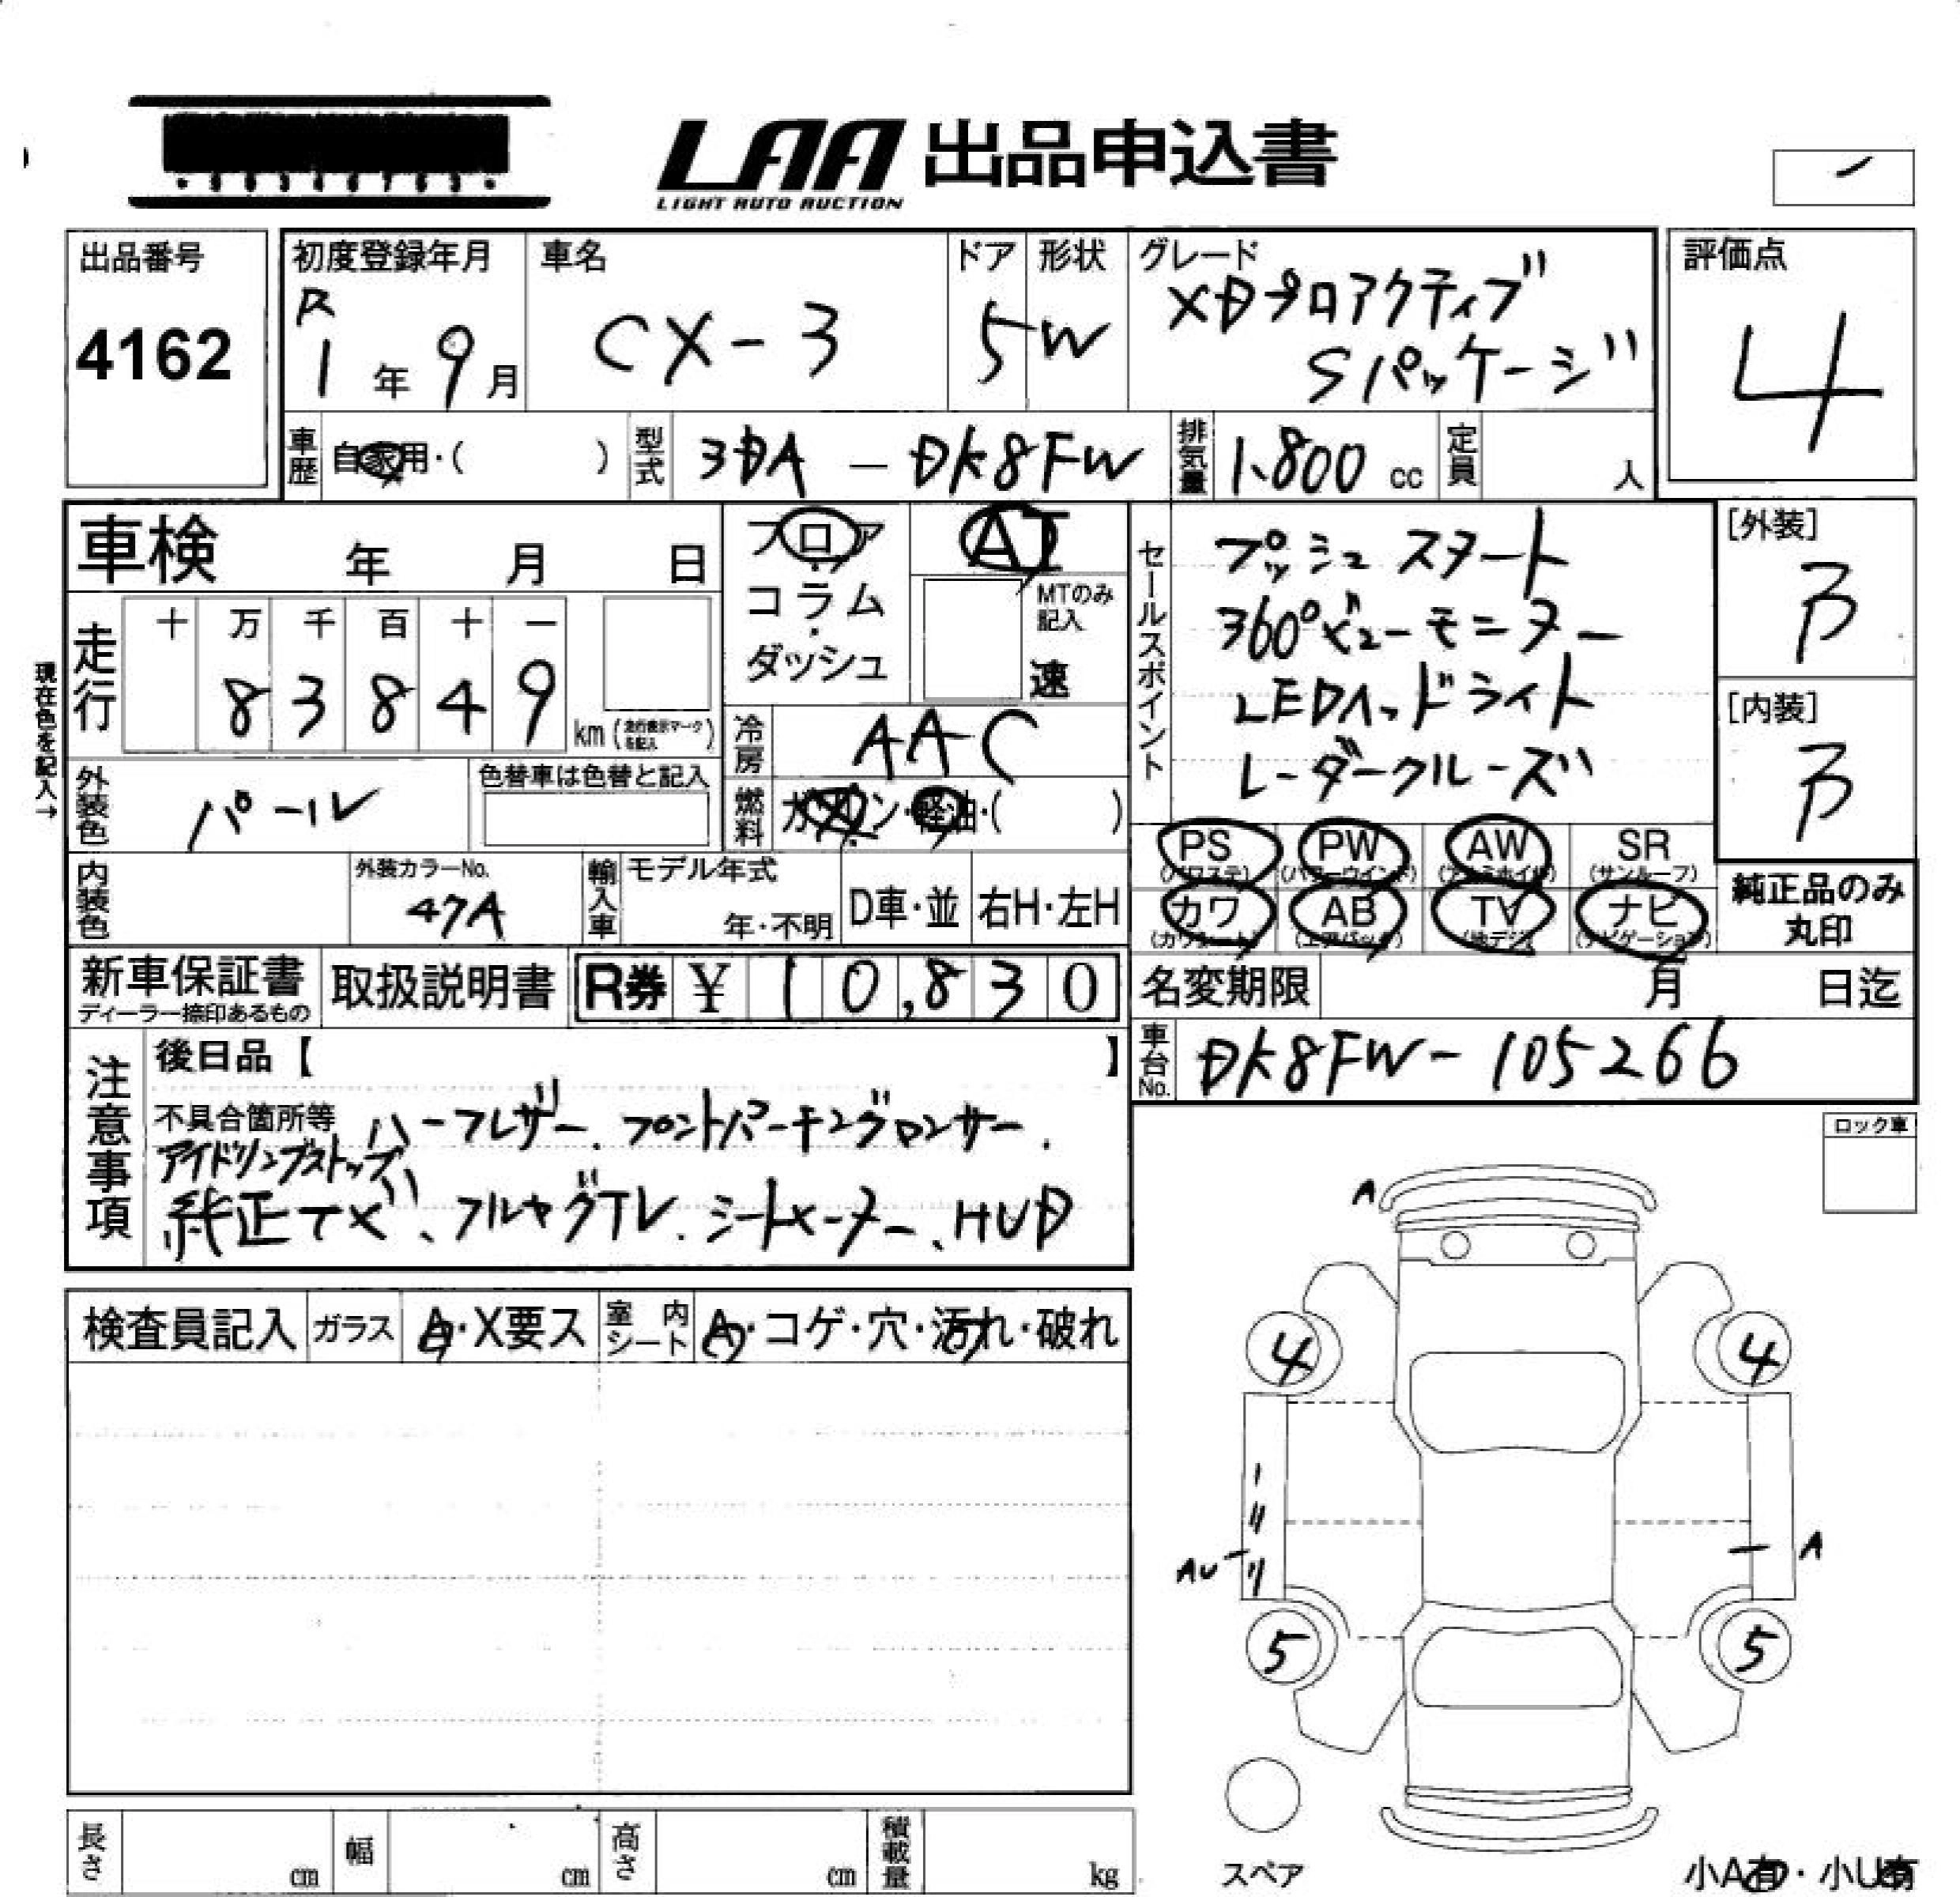 LAA 出品申込書
LIGHT AUTO AUCTION
出品番号
4162
初度登録年月
R
1年9月
車名
CX-3
ドア
5
形状
W
グレード
XDプロアクティブ
Sパッケージ
評価点
4
車歴 自家用・( )
型式 3DA-DK8FW
排気量 1.800 cc
定員 人
車検 年 月 日
フロア
コラム
・
ダッシュ
AT
MTのみ
記入
速
現在色を記入→
走行
十 万 千 百 十 一
8 3 8 4 9
km(走行表示マークを記入)
冷房 AAC
燃料 ガソリン・軽油・( )
外装色 パール
色替車は色替と記入
内装色
外装カラーNo.
47A
輸入車
モデル年式
年・不明
D車・並
右H・左H
セールスポイント
プッシュスタート
360°ビューモニター
LEDヘッドライト
レーダークルーズ
[外装]
B
[内装]
B
PS
(パワステ)
PW
(パワーウインド)
AW
(アルミホイル)
SR
(サンルーフ)
カワ
(カワシート)
AB
(エアバック)
TV
(地デジ)
ナビ
(ナビゲーション)
純正品のみ
丸印
新車保証書
ディーラー捺印あるもの
取扱説明書
R券 ¥ 10,830
名変期限 月 日迄
車台No. DK8FW-105266
注意事項
後日品【 】
不具合箇所等 ハーフレザー、フロントパーキングロンサー、
アイドリングストップ
純正ナビ、フルセグTV、シートヒーター、HUD
検査員記入
ガラス A・X要ス
室内シート A・コゲ・穴・汚れ・破れ
ロック車
A
4
4
AU
A
5
5
スペア
小A有・小U有
長さ cm
幅 cm
高さ cm
積載量 kg